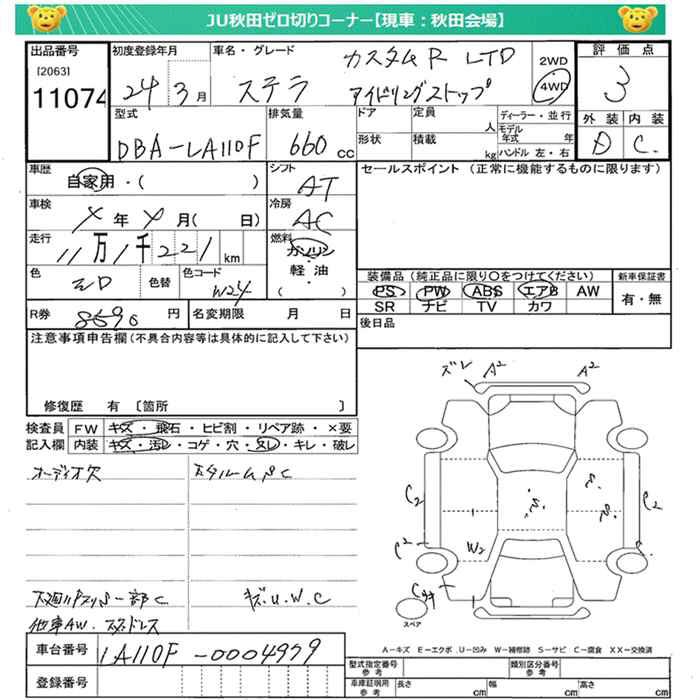 JU秋田ゼロ切りコーナー【現車：秋田会場】
出品番号
[2063]
11074
初度登録年月
24 3月
車名・グレード
ステラ
カスタムR LTD
アイドリングストップ
2WD
4WD
評価点
3
外装 内装
D C
型式
DBA-LA110F
排気量
660 cc
ドア
定員
人
ディーラー・並行
モデル年式 年
形状
積載
kg
ハンドル 左・右
車歴
自家用・( )
シフト
AT
セールスポイント (正常に機能するものに限ります)
車検
年 月( 日)
冷房
AC
走行
11万1千221km
燃料
ガソリン
軽油
( )
色
色替
色コード
W24
装備品 (純正品に限り○をつけてください)
新車保証書
PS PW ABS エアB AW
SR ナビ TV カワ
有・無
R券
8690 円
名変期限 月 日
後日品
注意事項申告欄(不具合内容等は具体的に記入して下さい)
修復歴 有 〔箇所 〕
検査員
記入欄
FW キズ・飛石・ヒビ割・リペア跡・×要
内装 キズ・汚レ・コゲ・穴・スレ・キレ・破レ
オーディオ欠
キズ.U.W.C
他車AW.スタッドレス
ズレ A2 A2
C2
C2
C2
W2
スペア
A－キズ E－エクボ U－凹み W－補修跡 S－サビ C－腐食 XX－交換済
車台番号
LA110F-0004979
登録番号
型式指定番号
参考
類別区分番号
参考
車庫証明用
参考
長さ cm
幅 cm
高さ cm